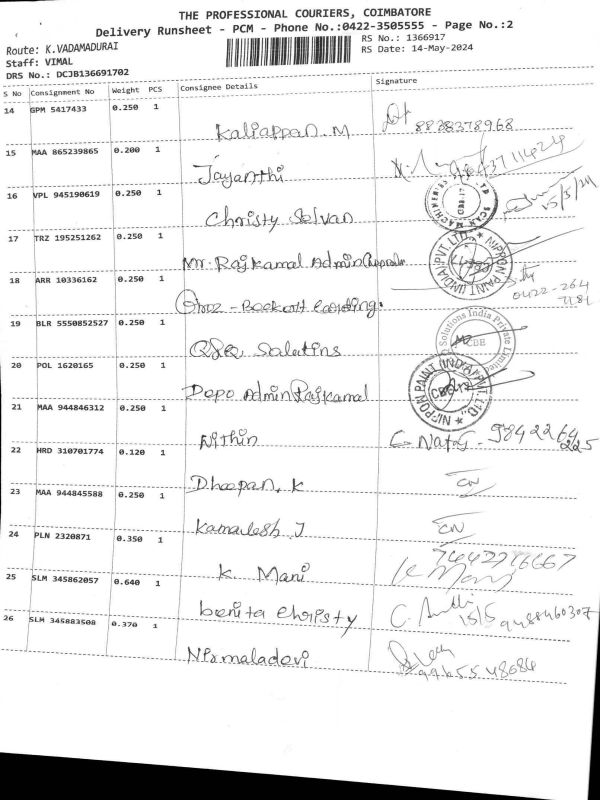 THE PROFESSIONAL COURIERS, COIMBATORE
Delivery Runsheet - PCM - Phone No.:0422-3505555 - Page No.:2
Route: K.VADAMADURAI
RS No.: 1366917
Staff: VIMAL
RS Date: 14-May-2024
DRS No.: DCJB136691702
S No Consignment No Weight PCS Consignee Details Signature
14 GPM 5417433 0.250 1
Kaliappan. M 8838378968
15 MAA 865239865 0.200 1
Jayanthi
16 VPL 945190619 0.250 1
Christy Selvan 15/5/24
17 TRZ 195251262 0.250 1
Mr. Rajkamal Admin
NIPPON PAINT (INDIA) PVT. LTD.,
18 ARR 10336162 0.250 1
0422-264
7181
19 BLR 5550852527 0.250 1
Solutions India Private Limited
CBE
20 POL 1620165 0.250 1
Depo Admin Rajkamal
NIPPON PAINT (INDIA) PVT. LTD.,
21 MAA 944846312 0.250 1
Nithin
22 HRD 310701774 0.120 1
Dhoopan. K CN
23 MAA 944845588 0.250 1
Kamalesh J CN
24 PLN 2320871 0.350 1
K Mani K Mani
25 SLM 345862057 0.640 1
benita Christy 15/5 9488460307
26 SLM 345883508 0.370 1
Nirmaladevi 99655 48684